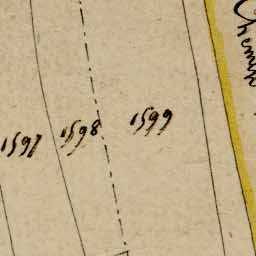 1597
1598
1599
Chemin